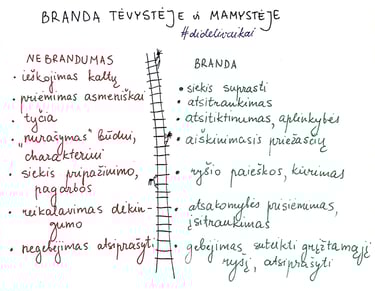 BRANDA TĖVYSTĖJE ir MAMYSTĖJE
#didelivaikai
NEBRANDUMAS
• ieškojimas kaltų
• priėmimas asmeniškai
• tyčia
• "nurašymas" būdui,
charakteriui
• siekis pripažinimo,
pagarbos
• reikalavimas dėkin-
gumo
• negebėjimas atsiprašyti
BRANDA
• siekis suprasti
• atsitraukimas
• atsitiktinumas, aplinkybės
• aiškinimasis priežasčių
• ryšio paieškos, kūrimas
• atsakomybės prisiėmimas,
įsitraukimas
• gebėjimas suteikti grįžtamąjį
ryšį, atsiprašyti